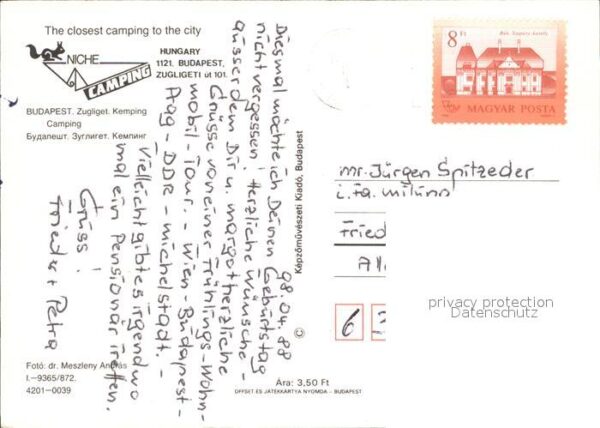 The closest camping to the city
NICHE
CAMPING
HUNGARY
1121. BUDAPEST,
ZUGLIGETI út 101.
BUDAPEST. Zugliget. Kemping
Camping
Будапешт. Зуглигет. Кемпинг
98.04.88
Diesmal möchte ich Deinen Geburtstag
nicht vergessen! Herzliche Wünsche -
ausserdem Dir u. Margot herzliche
Grüsse von einer Frühlings-Wohn-
mobil-Tour. - Wien - Budapest -
Prag - DDR - Michelstadt. -
Vielleicht gibt es irgendwo
mal ein Pensionär treffen.
Grüss!
Frieder + Petra
Képzőművészeti Kiadó, Budapest
©
8 Ft
MAGYAR POSTA
Mr. Jürgen Spitzeder
i. Fa. Miluns
Fried
All
6
privacy protection
Datenschutz
Fotó: dr. Meszleny András
I.—9365/872.
4201—0039
Ára: 3,50 Ft
OFFSET ÉS JÁTÉKKÁRTYA NYOMDA – BUDAPEST